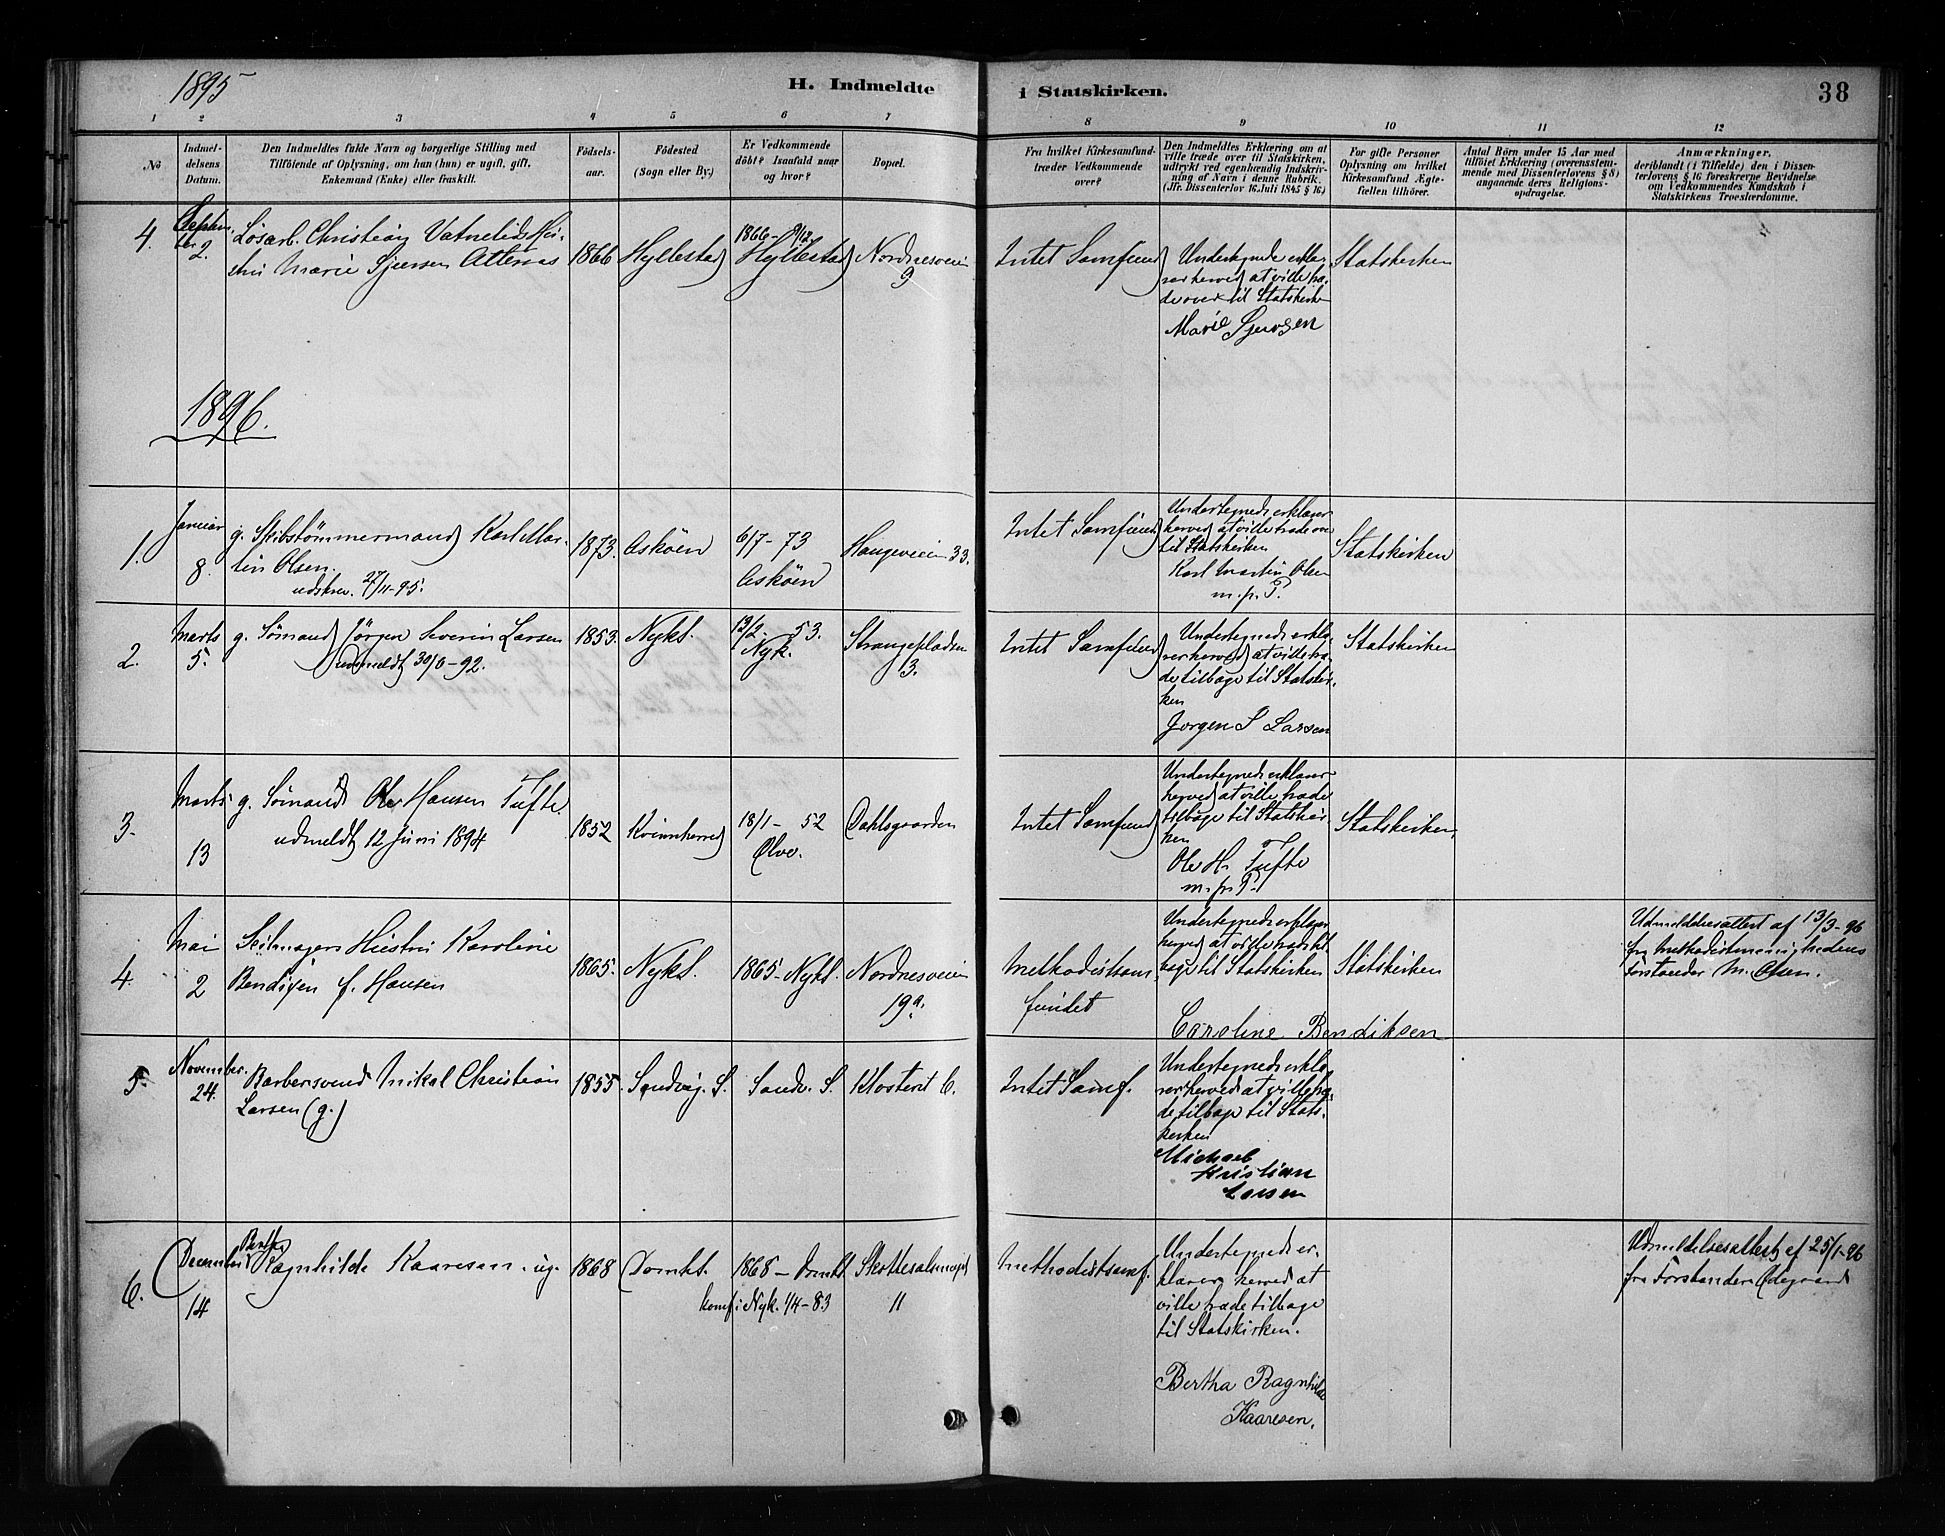 1895
H. Indmeldte
i Statskirken.
38
1 2 3 4 5 6 7 8 9 10 11 12
No
Indmel-
delsens
Datum.
Den Indmeldtes fulde Navn og borgerlige Stilling med
Tilföiende af Oplysning, om han (hun) er ugift, gift,
Enkemand (Enke) eller fraskilt.
Födsels-
aar.
Födested
(Sogn eller By.)
Er Vedkommende
döbt? Isaafald naar
og hvor?
Bopæl.
Fra hvilket Kirkesamfund
træder Vedkommende
over?
Den Indmeldtes Erklæring om at
ville træde over til Statskirken,
udtrykt ved egenhændig Indskriv-
ning af Navn i denne Rubrik.
(Jfr. Dissenterlov 16. Juli 1845 § 16)
For gifte Personer
Oplysning om hvilket
Kirkesamfund Ægte-
fællen tilhörer.
Antal Börn under 15 Aar med
tilföiet Erklæring (overensstem-
mende med Dissenterlovens § 8)
angaaende deres Religions-
opdragelse.
Anmærkninger,
deriblandt (i Tilfælde) den i Dissen-
terlovens § 16 foreskrevne Bevidnelse
om Vedkommendes Kundskab i
Statskirkens Troeslærdomme.
4.
Septem-
ber
2.
Løsarb. Christian Vatnelids Hu-
stru Marie Sjursen Attenas
1866
Hyllestad
1866 - 9/12
Hyllestad
Nordnesveien
9
Intet Samfund
Undertegnede erklæ-
rer herved at ville træ-
de over til Statskirken
Marie Sjursen
Statskirken
1896.
1.
Januar
8.
g. Skibstømmermand Karl Mar-
tin Olsen.
udskrev. 27/11-95.
1873.
Askøen
6/7 - 73
Askøen
Haugeveien 33.
Intet Samfund
Undertegnede erklærer
herved at ville træde over
til Statskirken
Karl Martin Olsen
m. p. P.
Statskirken
2.
Marts
5.
g. Sømand Jørgen Severin Larsen
udmeldt 30/6-92.
1853.
Nykk.
13/2 - 53.
Nyk.
Strangepladsen
3.
Intet Samfund
Undertegnede erklæ-
rer herved at ville træ-
de tilbage til Statskir-
ken
Jorgen S Larsen
Statskirken
3.
Marts
13
g. Sømand Ole Hansen Tufte.
udmeldt 12 Juni 1894
1852
Kvinnherred
18/1 - 52
Ølve.
Dahlsgaarden
Intet Samfund
Undertegnede erklærer
herved at ville træde
tilbage til Statskir-
ken
Ole H. Tufte
m. p. P.
Statskirken.
4.
Mai
2
Seilmagers Hustru Karoline
Bendixen f. Hansen
1865.
Nykk.
1865 - Nykk.
Nordnesveien
19a.
Methodistsam-
fundet
Undertegnede erklærer
herved at ville træde til-
bage til Statskirken
Caroline Bendiksen
Statskirken
Udmeldelsesattest af 13/3-96
fra Methodistmenighedens
Forstander M. Olsen.
5.
November.
24.
Barbersvend Mikal Christian
Larsen (g.)
1855.
Sandvig. S.
Sandv. S.
Klosteret 6.
Intet Samf.
Undertegnede erklæ-
rer herved at ville træ-
de tilbage til Stats-
kirken
Michael
Kristian
Larsen
6.
December
14
Bertha
Ragnhilde Kaaresen. ug.
1868
Domk.
1868 - Domk.
konf. i Nyk. 1/4-83
Skottesalmeget
11
Methodistsamf.
Undertegnede er-
klærer herved at
ville træde tilbage
til Statskirken.
Bertha Ragnhilde
Kaaresen.
Udmeldelsesattest af 25/1-96
fra Forstander Ødegaard